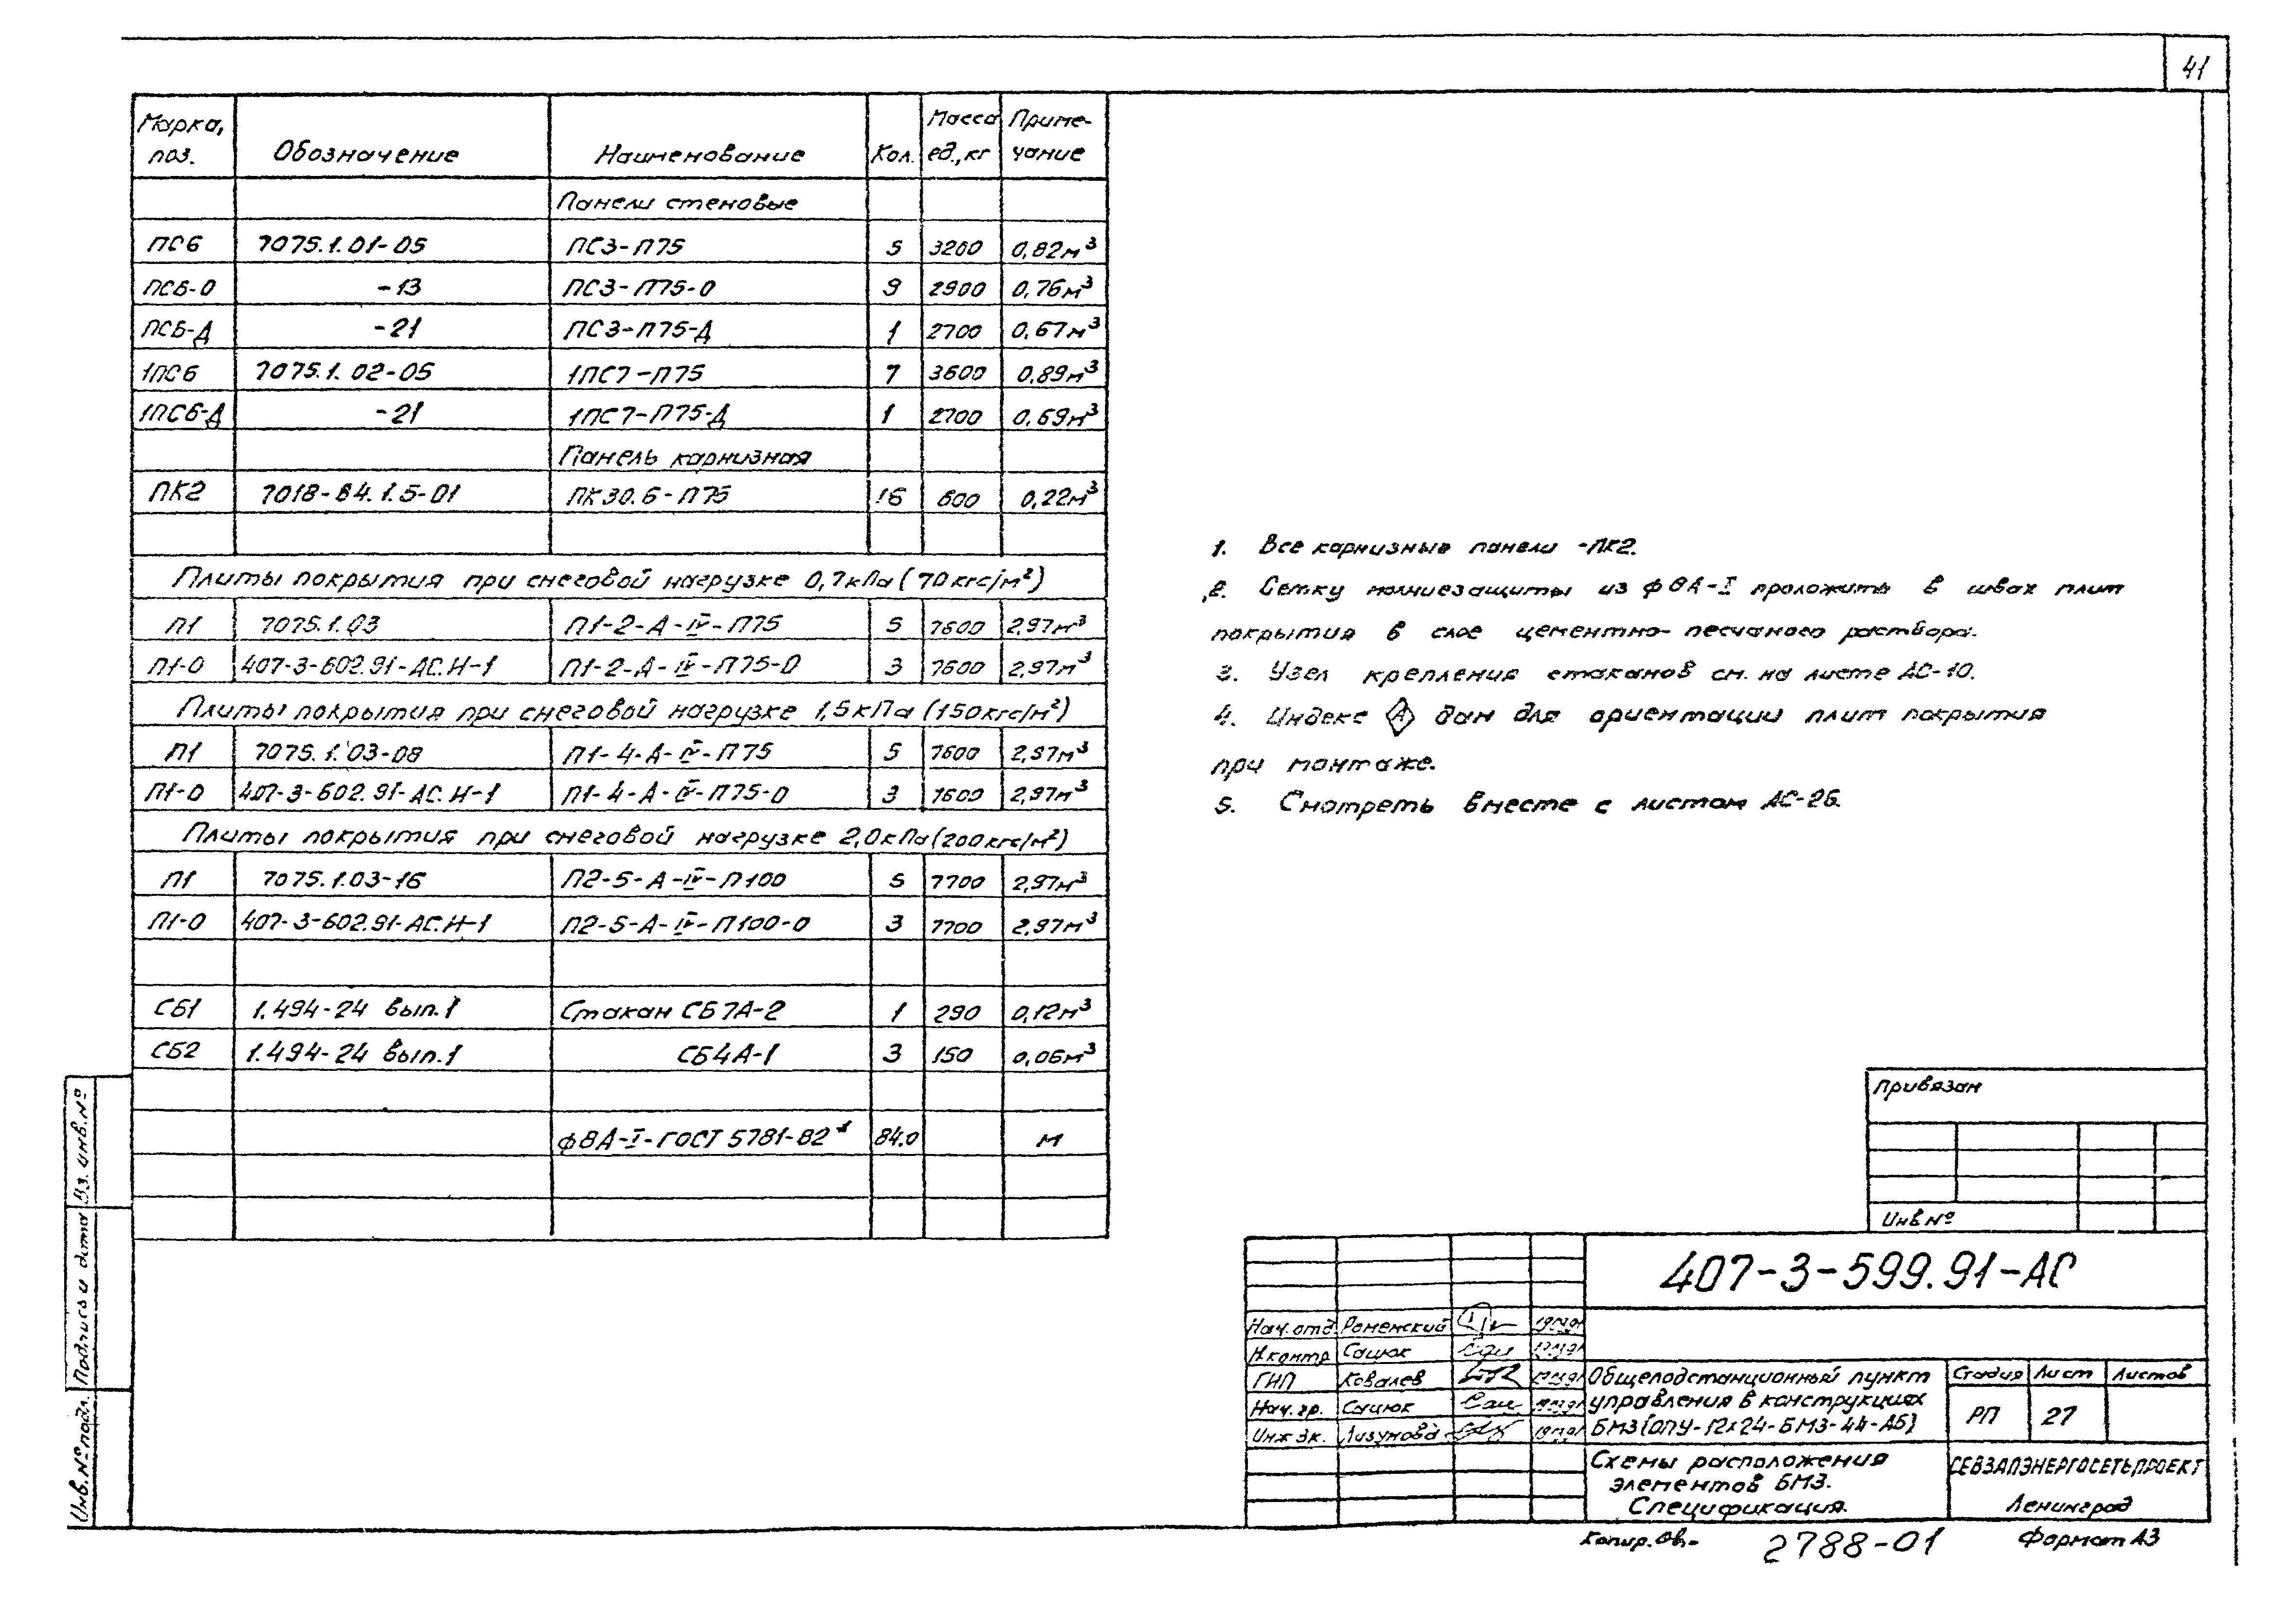 41
Марка, поз. Обозначение Наименование Кол. Масса ед., кг Приме-чание
Панели стеновые
ПС6 7075.1.01-05 ПС3-П75 5 3200 0,82м³
ПС6-0 -13 ПС3-П75-0 9 2900 0,76м³
ПС6-Д -21 ПС3-П75-Д 1 2700 0,67м³
1ПС6 7075.1.02-05 1ПС7-П75 7 3600 0,89м³
1ПС6-Д -21 1ПС7-П75-Д 1 2700 0,69м³
Панель карнизная
ПК2 7018-84.1.5-01 ПК30.6-П75 16 600 0,22м³
Плиты покрытия при снеговой нагрузке 0,7кПа (70кгс/м²)
П1 7075.1.03 П1-2-А-IV-П75 5 7600 2,97м³
П1-0 407-3-602.91-АС.И-1 П1-2-А-IV-П75-0 3 7600 2,97м³
Плиты покрытия при снеговой нагрузке 1,5кПа (150кгс/м²)
П1 7075.1.03-08 П1-4-А-IV-П75 5 7600 2,97м³
П1-0 407-3-602.91-АС.И-1 П1-4-А-IV-П75-0 3 7600 2,97м³
Плиты покрытия при снеговой нагрузке 2,0кПа (200кгс/м²)
П1 7075.1.03-16 П2-5-А-IV-П100 5 7700 2,97м³
П1-0 407-3-602.91-АС.И-1 П2-5-А-IV-П100-0 3 7700 2,97м³
СБ1 1.494-24 вып.1 Стакан СБ7А-2 1 290 0,12м³
СБ2 1.494-24 вып.1 СБ4А-1 3 150 0,06м³
ф8А-I-ГОСТ 5781-82 84.0 м
1. Все карнизные панели -ПК2.
2. Сетку молниезащиты из ф8А-I проложить в швах плит
покрытия в слое цементно-песчаного раствора.
3. Узел крепления стаканов см. на листе АС-10.
4. Индекс А дан для ориентации плит покрытия
при монтаже.
5. Смотреть вместе с листом АС-26.
Привязан
Инв №
407-3-599.91-АС
Нач. отд. Роменский
Н.контр Сацюк
ГИП Ковалев
Нач. гр. Сацюк
Инж IIк. Лизунова
Общеподстанционный пункт
управления в конструкциях
БМЗ (ОПУ-12х24-БМЗ-44-АБ)
Стадия Лист Листов
РП 27
Схемы расположения
элементов БМЗ.
Спецификация.
СЕВЗАПЭНЕРГОСЕТЬПРОЕКТ
Ленинград
Копир.
2788-01
Формат А3
Инв. № подл. Подпись и дата Вз. инв. №